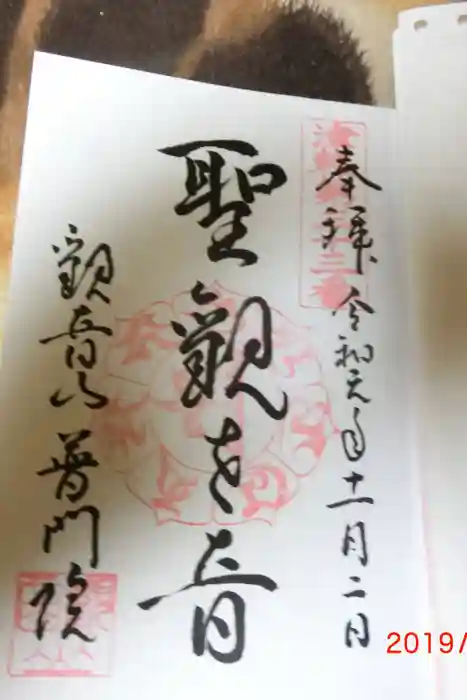 奉拝
令和元年十一月二日
聖観世音
観音山
普門院
2019/